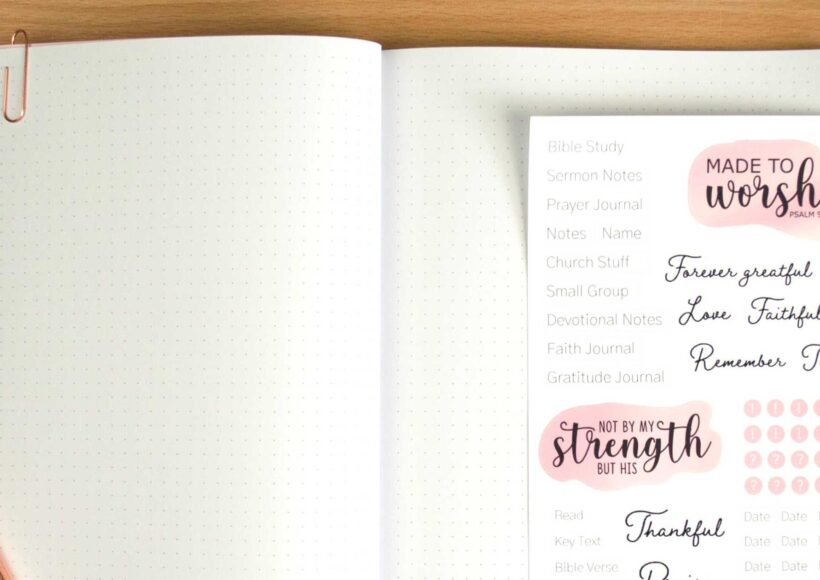 Bible Study
Sermon Notes
Prayer Journal
Notes Name
Church Stuff
Small Group
Devotional Notes
Faith Journal
Gratitude Journal
MADE TO
worsh
PSALM 9
Forever greatful
Love Faithful
Remember
NOT BY MY
strength
BUT HIS
! ! ! !
! ! ! !
? ? ? ?
? ? ? ?
Read
Key Text
Bible Verse
Thankful
Date Date Date
Date Date Date
Date Date Date